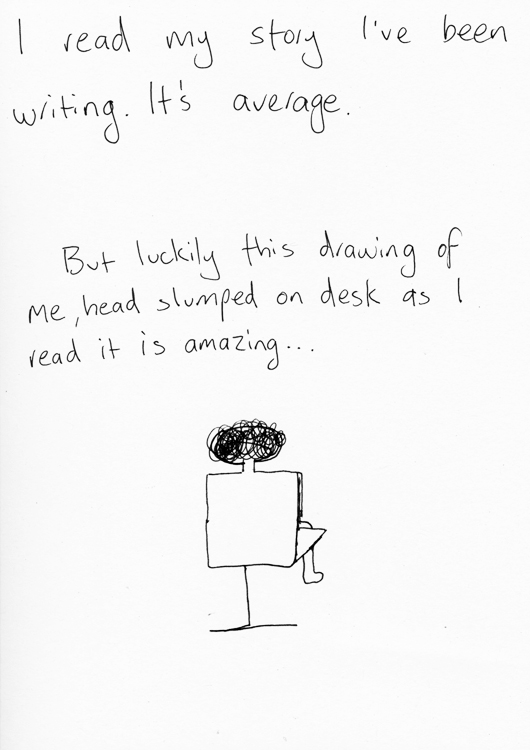 I read my story I've been
writing. It's average.
But luckily this drawing of
me, head slumped on desk as I
read it is amazing...